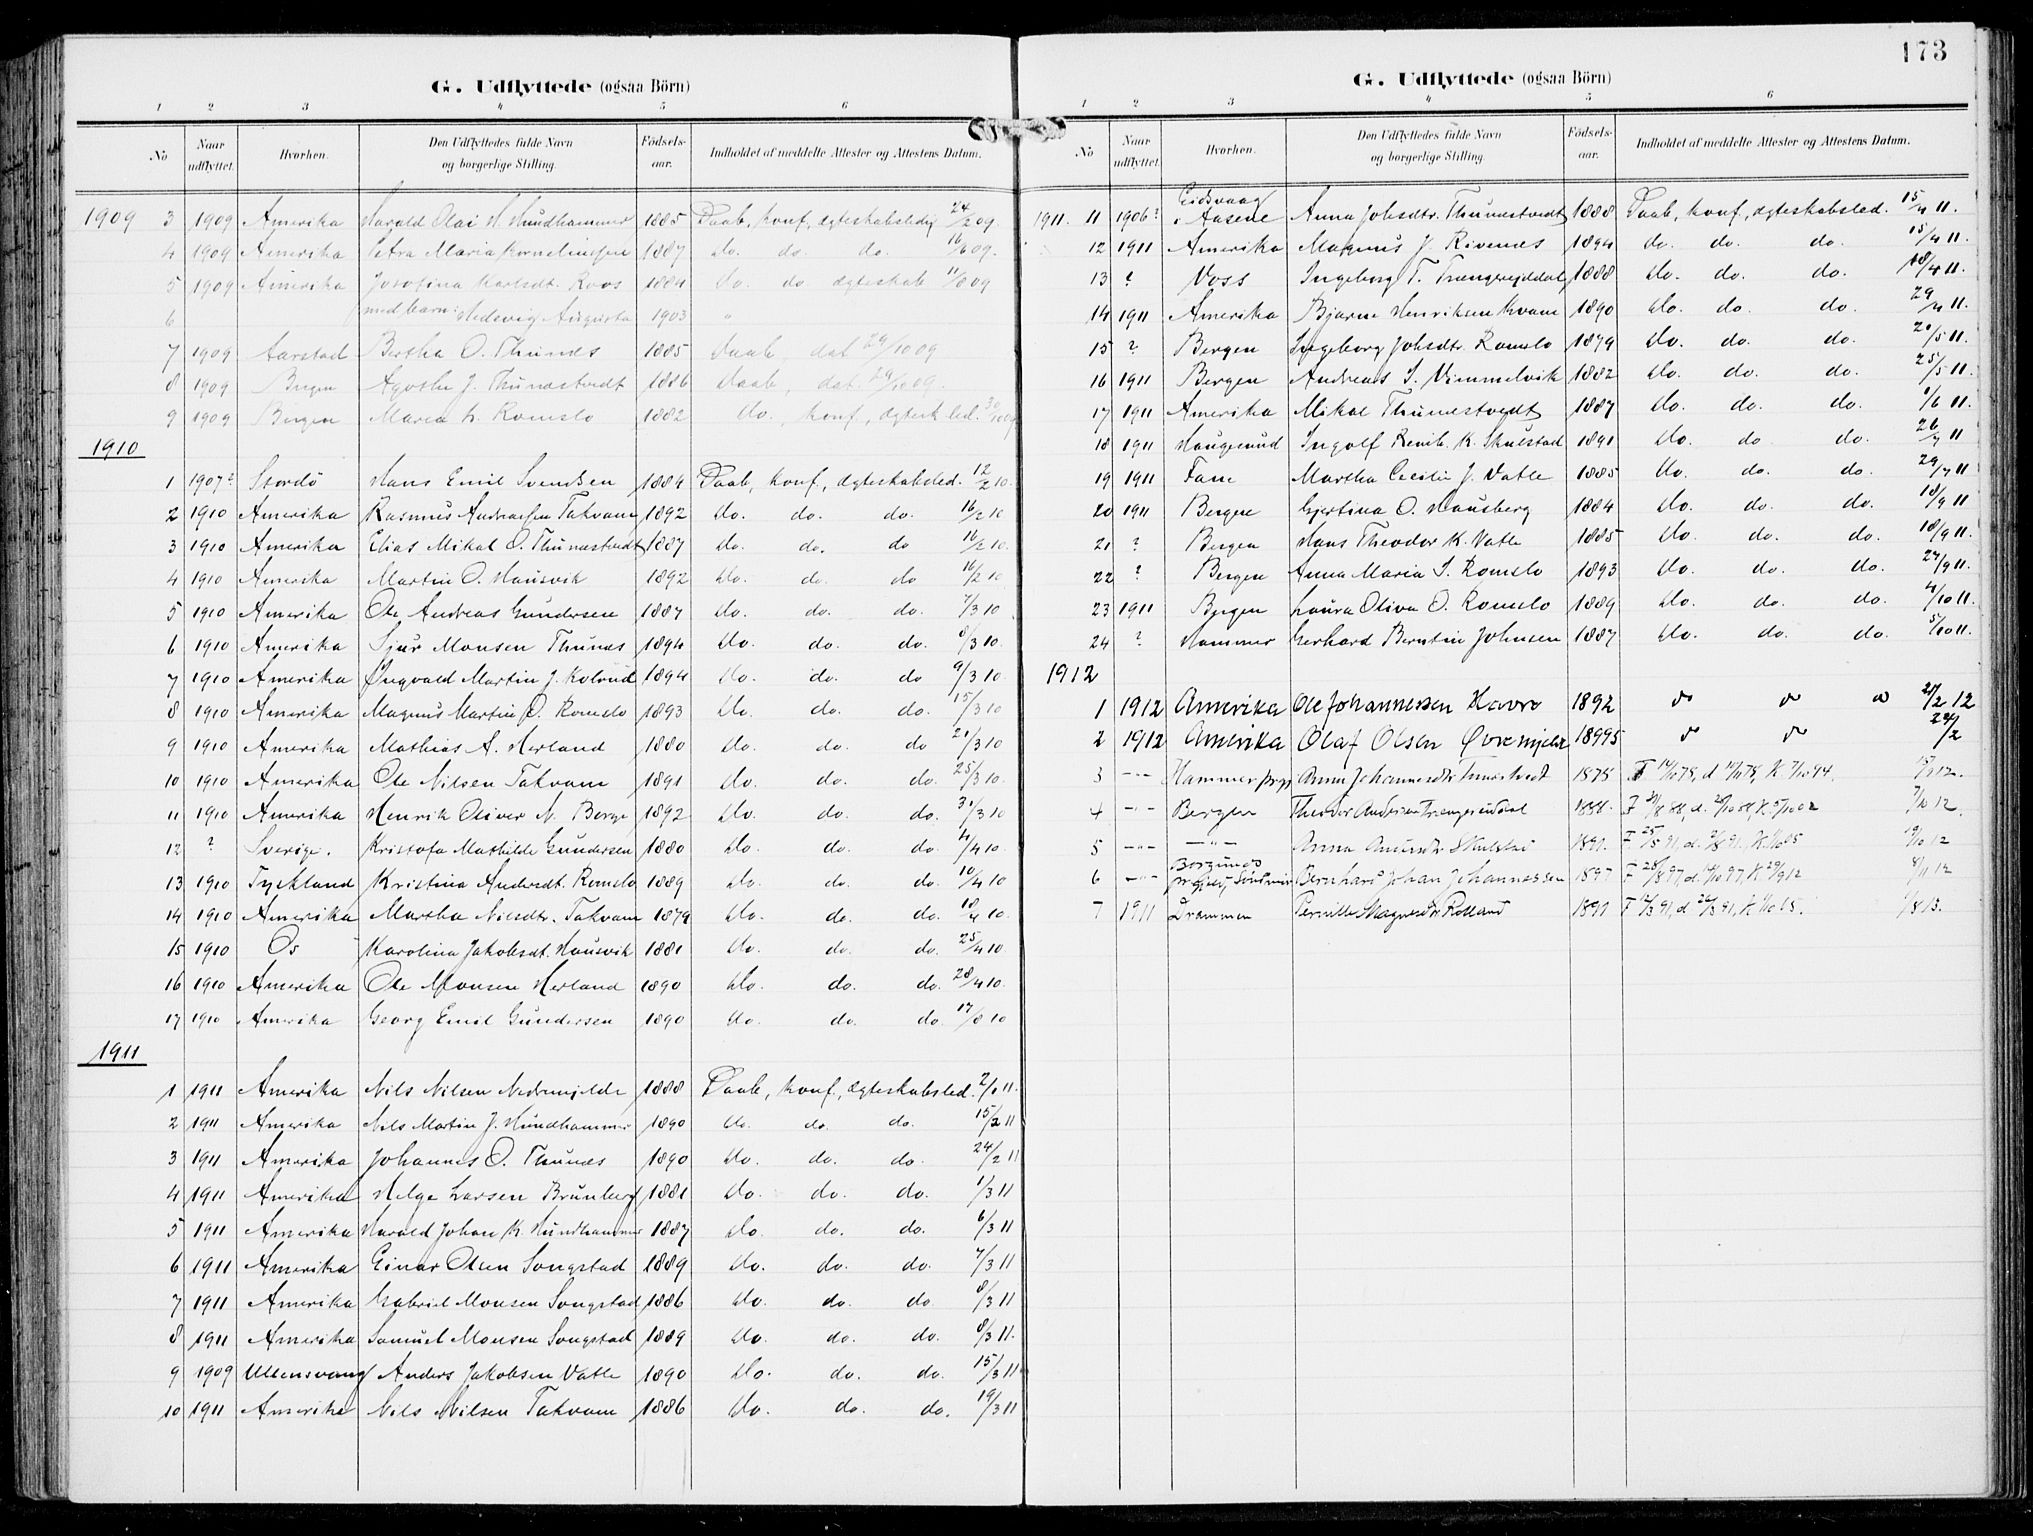 G. Udflyttede (ogsaa Börn)
1 2 3 4 5 6
No Naar udflyttet. Hvorhen. Den Udflyttedes fulde Navn og borgerlige Stilling. Födsels-aar. Indholdet af meddelte Attester og Attestens Datum.
1909 3 1909 Amerika Harald Olai H. Hundhammer 1885 Daab, konf, ægteskabsledig 24/2 09
4 1909 Amerika Petra Maria Korneliusen 1887 do. do. do. 16/6 09.
5 1909 Amerika Josefina Karlsdt. Roos 1884 do. do ægteskab 11/8 09
6 med barn: Hedevig Augusta 1903 "
7 1909 Aarstad Bertha O. Thunæs 1885 Daab, dat 29/10 09
8 1909 Bergen Agathe J. Thunæstvedt 1886 Daab, dat 29/10 09.
9 1909 Bergen Maria L. Romslo 1882 do. konf, ægtesk.led. 30/10 09
1910
1 1907? Stordö Hans Emil Svendsen 1884 Daab, konf., ægteskabsled. 12/2 10.
2 1910 Amerika Rasmus Andreassen Takvam 1892 do. do. do. 16/2 10
3 1910 Amerika Elias Mikal O. Thunæstvedt 1887 do. do. do 16/2 10.
4 1910 Amerika Martin O. Hausvik 1892 do. do. do 16/2 10
5 1910 Amerika Ole Andreas Gundersen 1887 do. do. do. 7/3 10.
6 1910 Amerika Sjur Monsen Thunæs 1894 do. do. do. 8/3 10.
7 1910 Amerika Øngvald Martin J. Kolrud 1894 do. do. do 9/3 10.
8 1910 Amerika Magnus Martin O. Romslo 1893 do. do. do. 15/3 10
9 1910 Amerika Mathias A. Herland 1880 do. do. do 21/3 10
10 1910 Amerika Ole Nilsen Takvam 1891 do. do. do. 25/3 10.
11 1910 Amerika Henrik Oliver N. Borge 1892 do. do. do. 31/3 10
12 ? Sverige. Kristofa Mathilde Gundersen 1880 do. do. do. 4/4 10.
13 1910 Tyskland Kristina Andersdt. Romslo 1889 do. do. do. 10/4 10
14 1910 Amerika Martha Nilsdtr. Takvam 1879 do. do. do. 18/4 10.
15 1910 Os Karolina Jakobsdt. Hausvik 1881 do. do. do. 25/4 10
16 1910 Amerika Ole Monsen Herland 1890 do. do. do. 28/4 10.
17 1910 Amerika Georg Emil Gundersen 1890 do. do. do. 17/8 10
1911
1 1911 Amerika Nils Nilsen Nedremjelde 1888 Daab, konf., ægteskabsled. 2/1 11.
2 1911 Amerika Nils Martin J. Hundhammer 1890 do. do. do. 15/2 11
3 1911 Amerika Johannes O. Thunæs 1890 do. do. do. 24/2 11
4 1911 Amerika Helge Larsen Brunborg 1881 do. do. do. 1/3 11
5 1911 Amerika Harald Johan K. Hundhammer 1887 do. do. do. 6/3 11
6 1911 Amerika Einar Olsen Songstad 1889 do. do. do. 7/3 11
7 1911 Amerika Gabriel Monsen Songstad 1886 do. do. do. 8/3 11
8 1911 Amerika Samuel Monsen Songstad 1889 do. do. do. 8/3 11.
9 1909 Ullensvang Anders Jakobsen Vatle 1890 do. do. do. 15/3 11
10 1911 Amerika Nils Nilsen Takvam 1886 do. do. do. 19/3 11
173
G. Udflyttede (ogsaa Börn)
1 2 3 4 5 6
No Naar udflyttet. Hvorhen. Den Udflyttedes fulde Navn og borgerlige Stilling. Födsels-aar. Indholdet af meddelte Attester og Attestens Datum.
1911. 11 1906? Eidsvaag i Aasene Anna Johsdtr. Thunæstvedt 1888 Daab, konf., ægteskabsled. 15/4 11.
12 1911 Amerika Magnus J. Rivenæs 1894 do. do. do. 15/4 11.
13 ? Voss Ingeborg T. Trængereiddal 1888 do. do. do. 18/4 11.
14 1911 Amerika Bjarne Henriksen Kvam 1890 do. do. do. 29/4 11.
15 ? Bergen Ingeborg Johsdtr. Romslo 1879 do. do. do. 20/5 11.
16 1911 Bergen Andreas I. Vimmelvik 1882 do. do. do. 25/5 11.
17 1911 Amerika Mikal Thunæstvedt 1887 do. do. do. 1/6 11.
18 1911 Haugesund Ingolf K. Skulstad 1891 do. do do. 26/7 11
19 1911 Fane Martha Cecilie J. Vatle 1885 do. do. do. 29/7 11
20 1911 Bergen Gjertina O. Hausberg 1884 do. do. do. 18/9 11
21 ? Bergen Hans Theodor K. Vatle 1885 do. do. do. 18/9 11.
22 ? Bergen Anna Maria I. Romslo 1893 do. do. do. 27/9 11.
23 1911 Bergen Laura Oliva O. Romslo 1889 do. do. do. 4/10 11.
24 ? Hammer Gerhard Berntin Johnsen 1887 do. do. do. 5/10 11.
1912
1 1912 Amerika Ole Johannessen Havro 1892 do do do 21/2 12
2 1912 Amerika Olaf Olsen Øvremjelde 18995 do do 24/2
3 -"- Hammer prgj. Anna Johannesdtr Tunestvedt 1875
4 -"- Bergen Theodor Andersen Trængereiddal 1888. 7/10 12
5 -"- -"- Anna Andersdtr Skulstad 1891. 19/10 12
6 -"- Borgunds prgjeld, Søndmør Bernhard Johan Johannessen 1897 8/11 12
7 1911 Drammen Pernille Magnesdtr Rolland 1891 1/8 13.